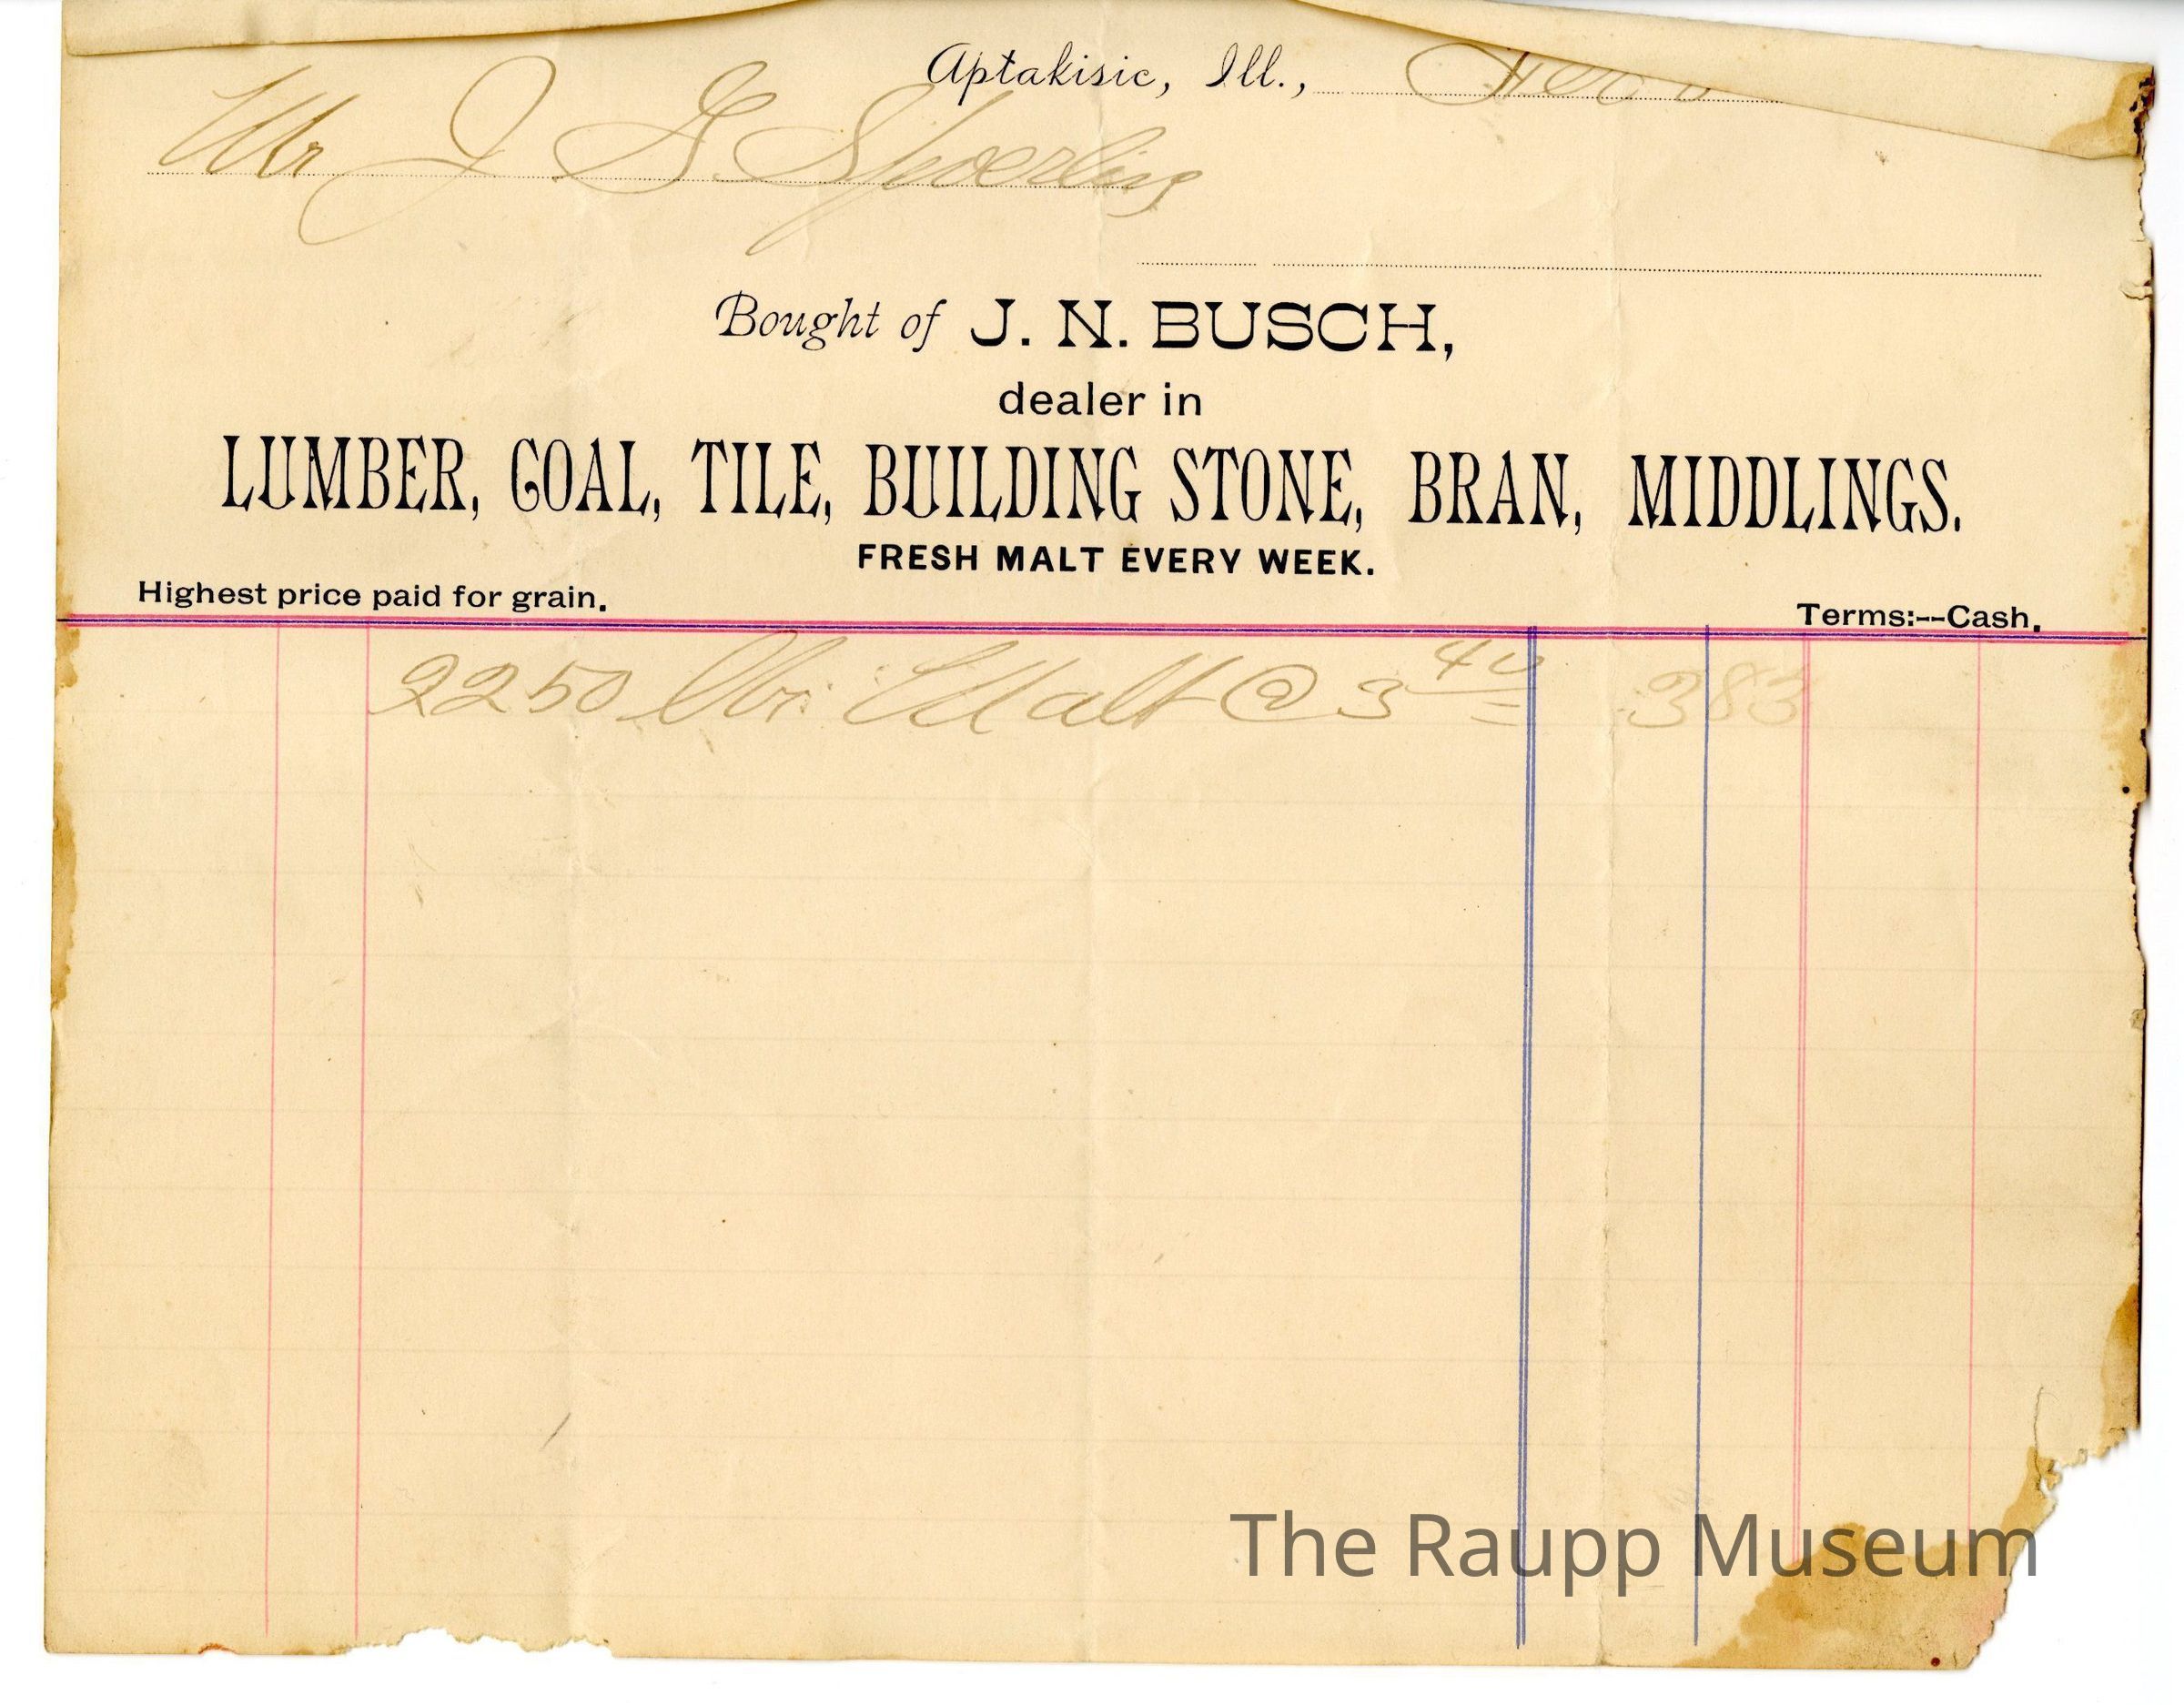 Aptakisic, Ill.,
Mr J G Spoerling
Bought of J. N. BUSCH,
dealer in
LUMBER, COAL, TILE, BUILDING STONE, BRAN, MIDDLINGS.
FRESH MALT EVERY WEEK.
Highest price paid for grain.
Terms:--Cash.
2250 lbs. Malt @ 3 40 383
The Raupp Museum